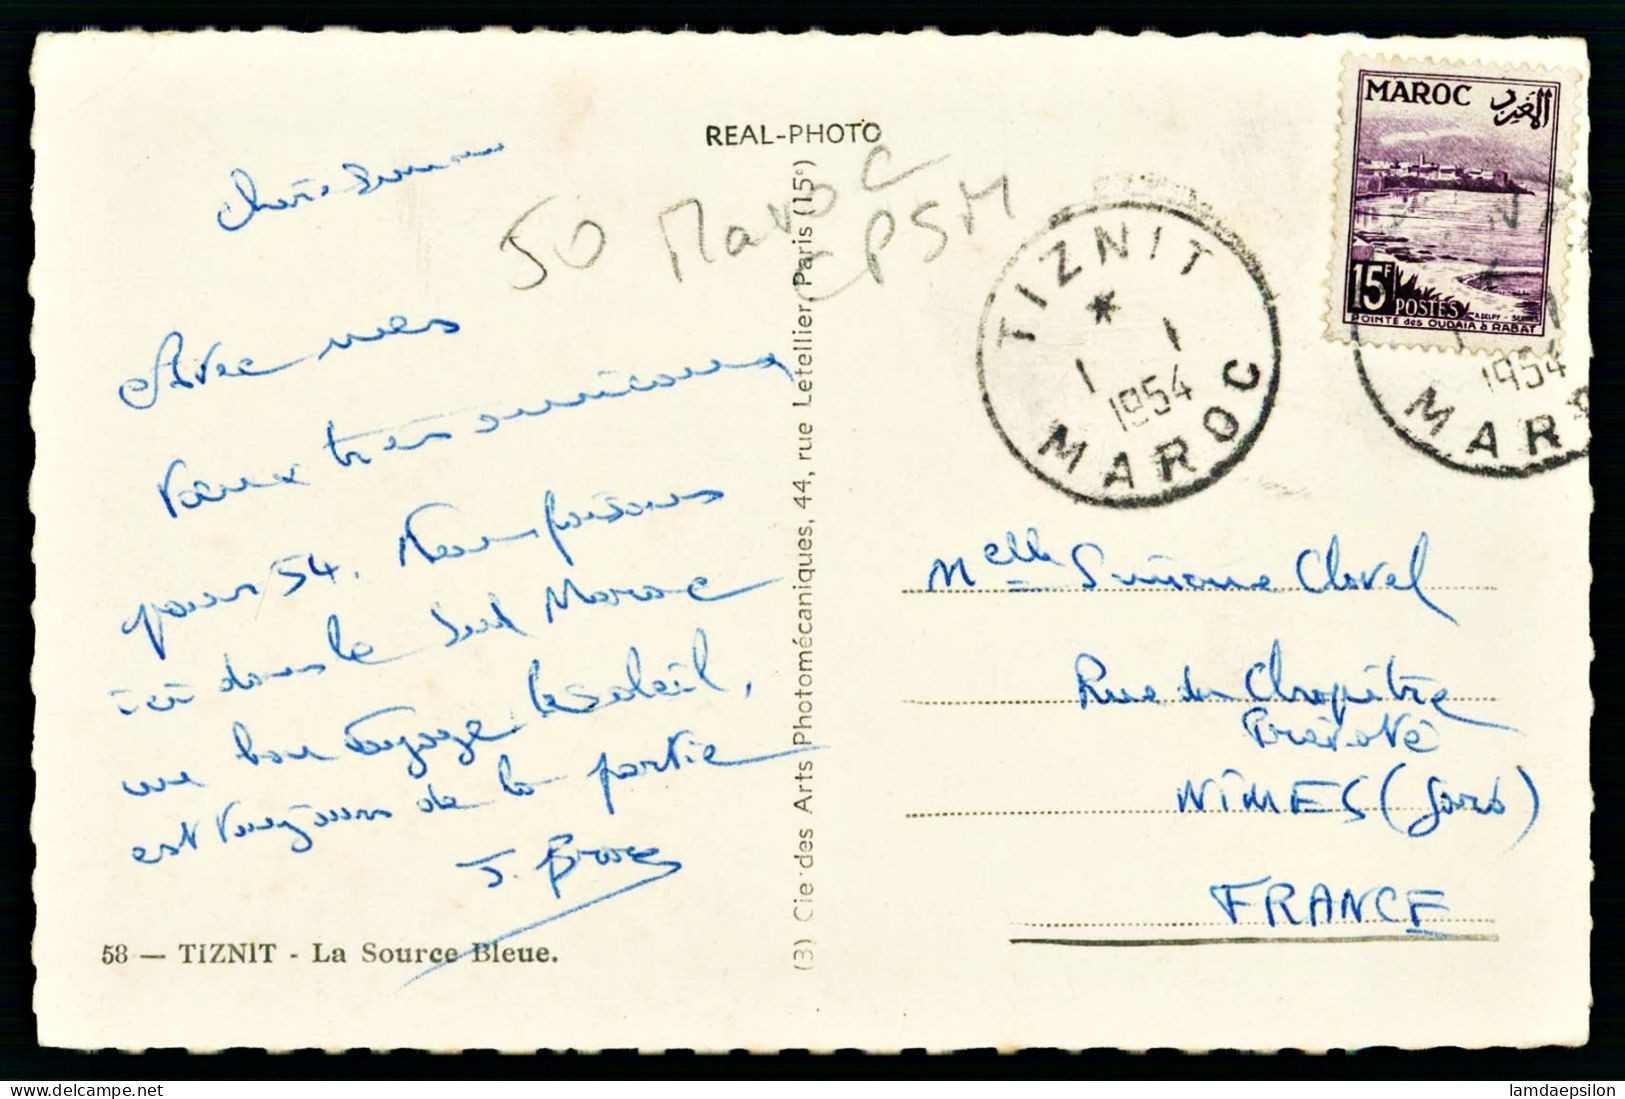 REAL-PHOTO
50 Maroc
CPSM
Chère Simone
Avec mes
vœux très amicaux
pour 54. Nous faisons
ici dans le Sud Maroc
un bon voyage le soleil,
est toujours de la partie
J.
58 — TIZNIT - La Source Bleue.
(3) Cie des Arts Photomécaniques, 44, rue Letellier, Paris (15e)
TIZNIT
*
1 1
1954
MAROC
MAROC المغرب
15F POSTES
POINTE des OUDAIA à RABAT
1954
MARO
Melle Simone Clavel
Rue du Chapitre
NIMES (Gard)
FRANCE
delcampe.net
lamdaepsilon